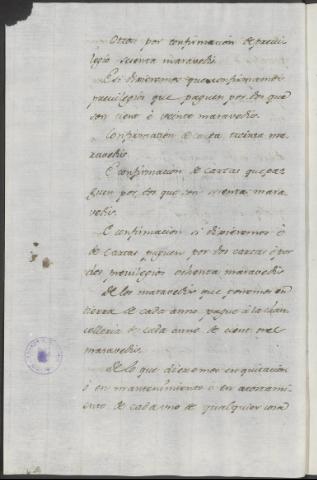 Otrosi por confirmacion de previ-
legio sesenta maravedis.
E si dixieremos que confirmamos
previlegios que paguen por dos que
son ciento e veinte maravedis.
Confirmacion de carta treinta ma-
ravedis.
E confirmacion de cartas que pa-
guen por dos que son sesenta mara-
vedis.
E confirmacion si dixieremos o
de cartas paguen por dos cartas o por
dos previlegios ochenta maravedis
De los maravedis que ponemos en
tierra de cada anno pague a la chan-
celleria de cada anno de cient mrs
maravedis.
De lo que dieremos en quitacion
o en mantenimiento o en acostami-
ento de cada uno de qualquier cosa